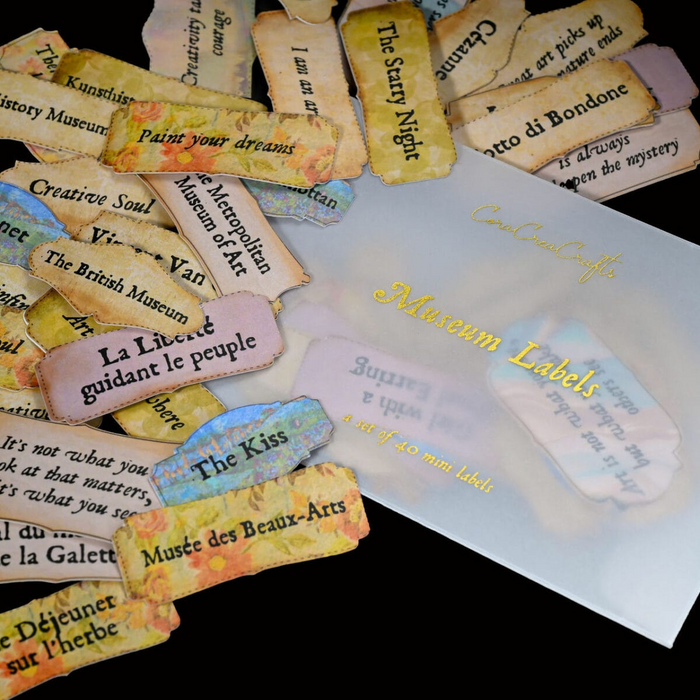 Creativity ta
courage
I am an ar
The Starry Night
Cézanne
eat art picks up
ature ends
The
Kunsthis
istory Museum
Paint your dreams
otto di Bondone
is always
deepen the mystery
Creative Soul
he Metropolitan
Museum of Art
hattan
net
Vincent Van
The British Museum
infin
oul
Art
La Liberté
guidant le peuple
here
It's not what you
ok at that matters,
it's what you see
The Kiss
Musée des Beaux-Arts
al du m
e la Galett
e Déjeuner
sur l'herbe
CoraCreaCrafts
Museum Labels
a set of 40 mini labels
Girl with a
Earring
Art is not what you
but what
others see